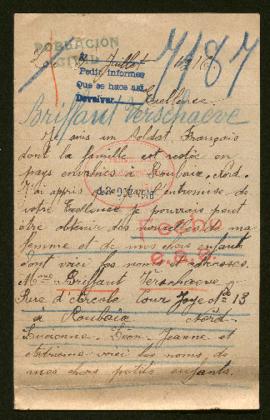 POBLACION
CIVIL
7187
Juillet
Pedir informes
Que se hace así
Devolver
Excellence
Briffaut Verschaeve
Je suis un Soldat Français
dont la famille est restée en
pays envahies à Roubaix, Nord.
J'ai appris l'entremise de
votre Excellence je pourrais peut
être obtenir des nouvelles de ma
femme et de mes chers enfants
dont voici les noms et adresses.
Mme Briffaut Verschaeve
Rue d'Arcole Cour Joye No 13
à Roubaix Nord.
Léon, Jeanne et
voici les noms, de
mes chers petits enfants.
Fecho